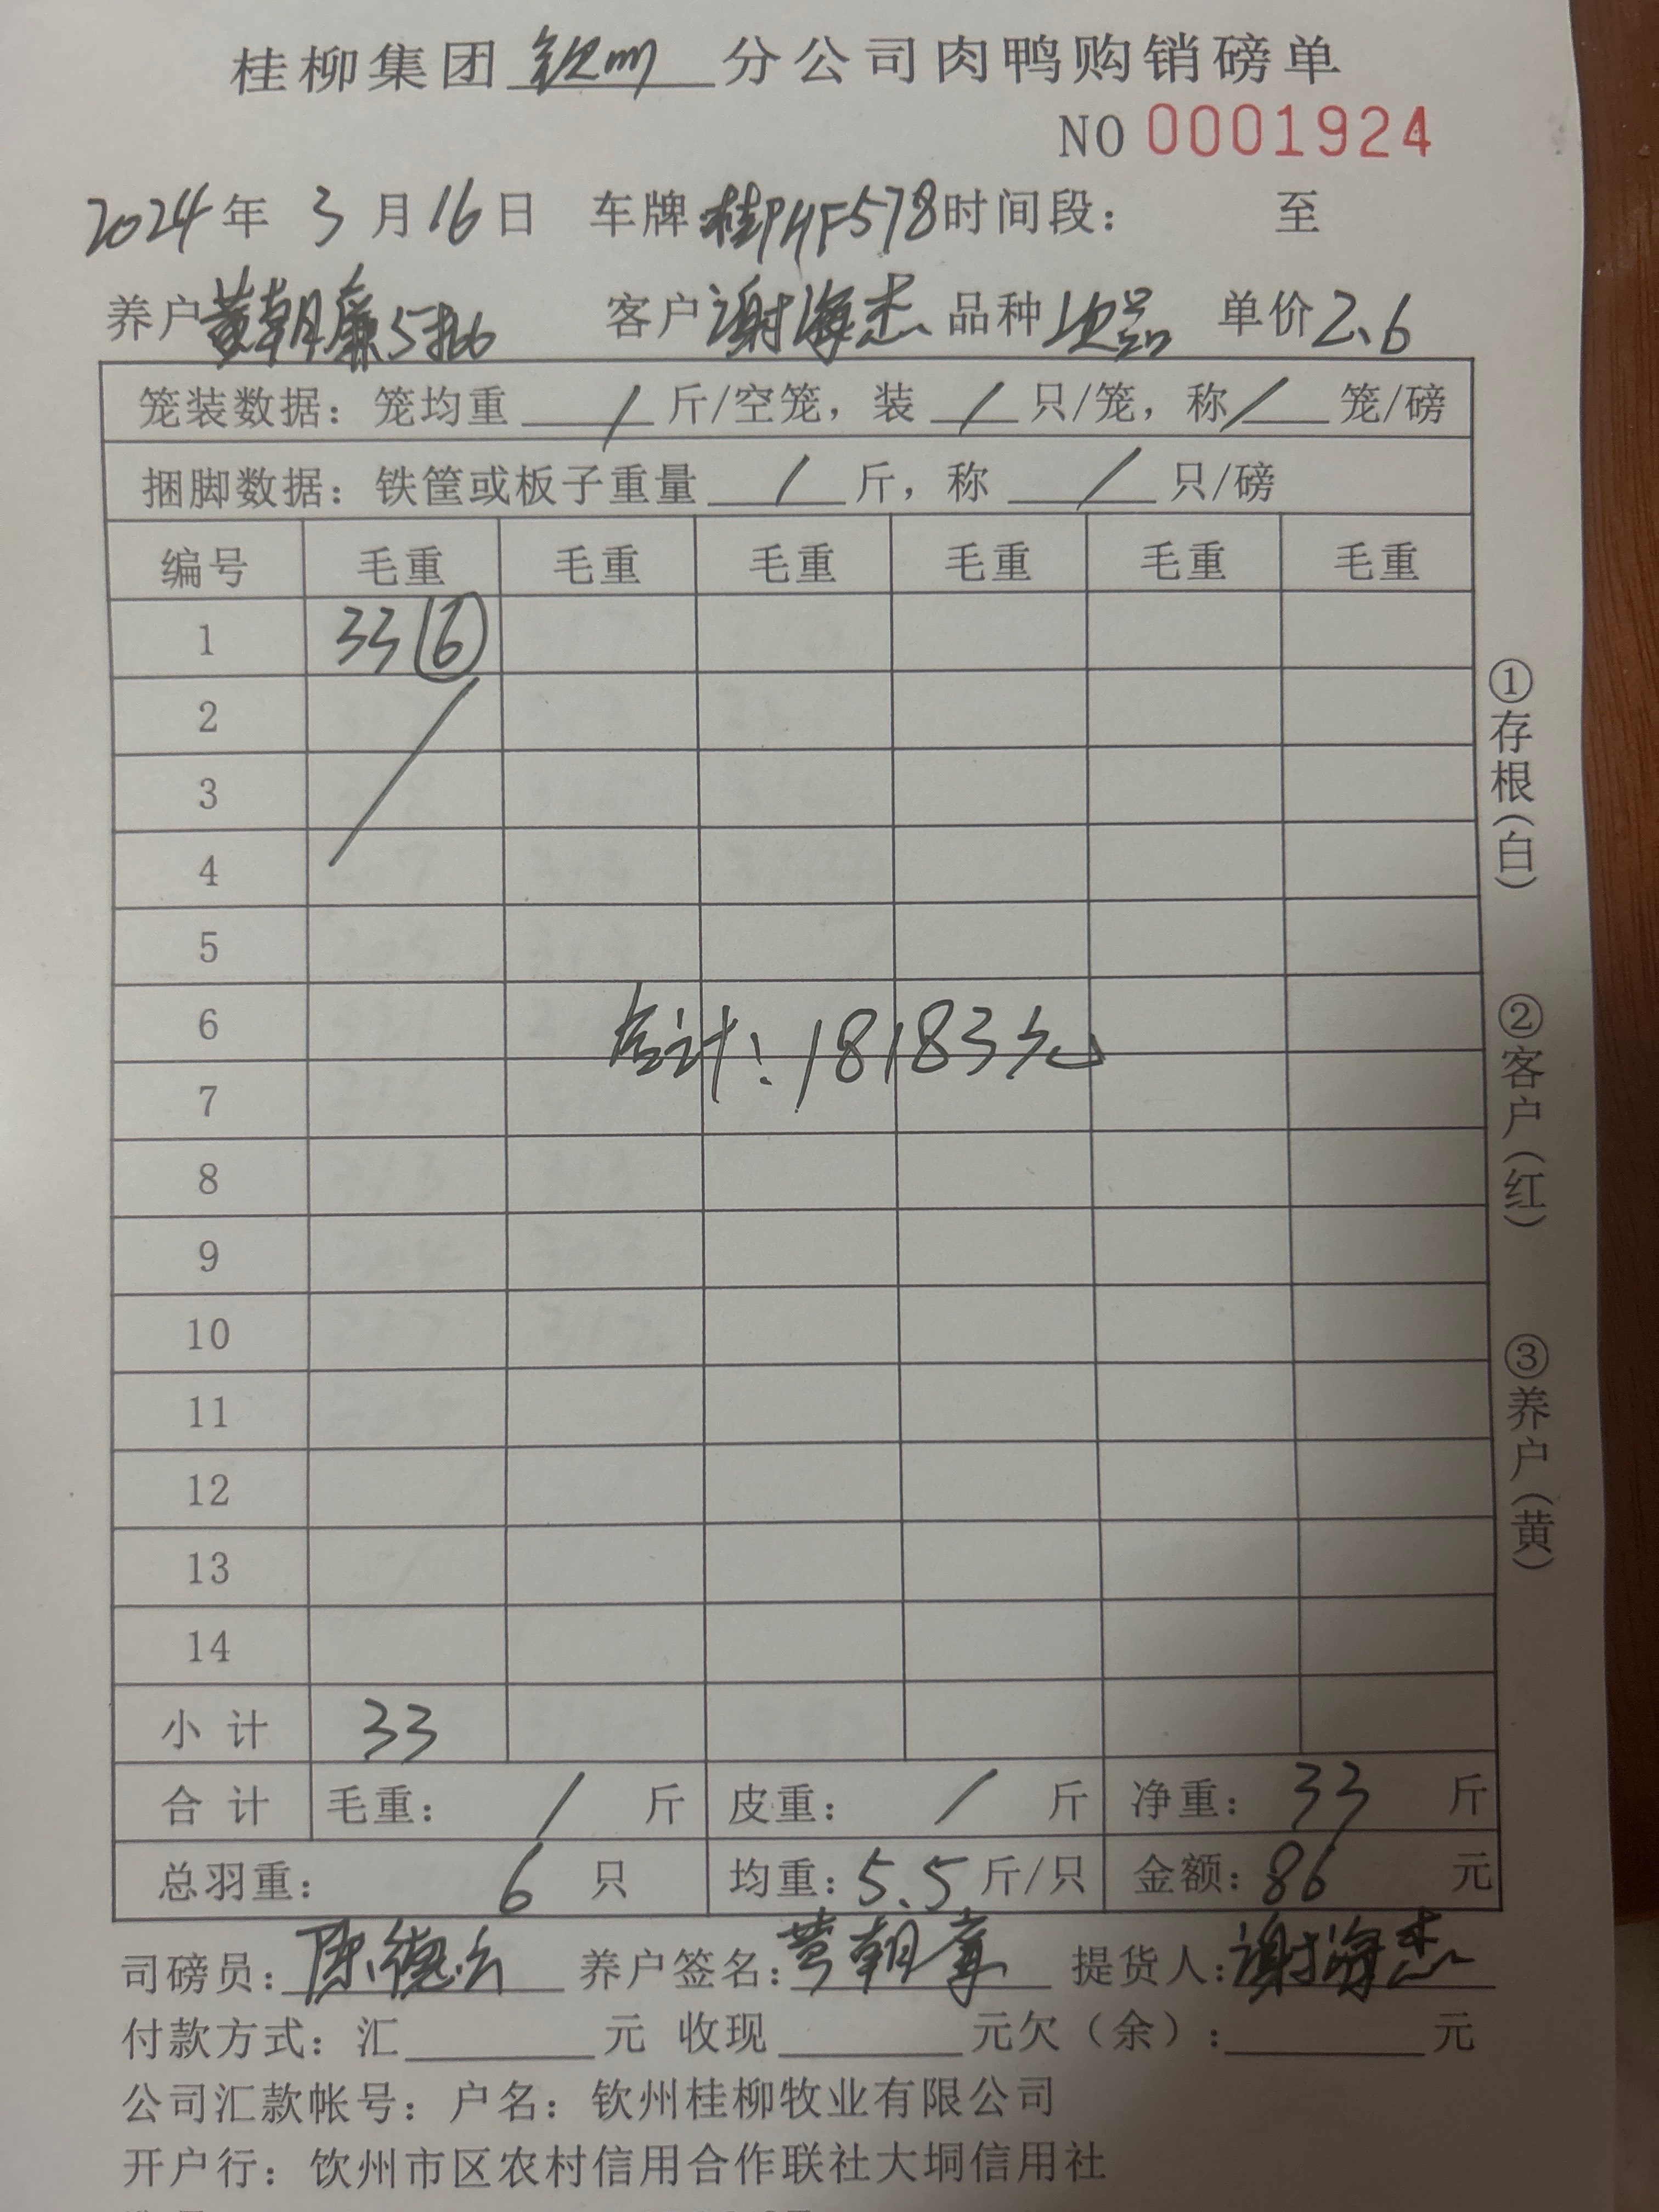 桂柳集团 钦州 分公司肉鸭购销磅单
NO 0001924
2024年 3月16日 车牌 桂PHF578 时间段: 至
养户 黄朝廉5批 客户 谢海杰 品种 次品 单价 2.6
笼装数据: 笼均重 / 斤/空笼, 装 / 只/笼, 称 / 笼/磅
捆脚数据: 铁筐或板子重量 / 斤, 称 / 只/磅
编号 毛重 毛重 毛重 毛重 毛重 毛重
1 33 ⑥
2
3
4
5
6
合计: 18183元
7
8
9
10
11
12
13
14
小 计 33
合 计 毛重: / 斤 皮重: / 斤 净重: 33 斤
总羽重: 6 只 均重: 5.5 斤/只 金额: 86 元
司磅员: 陈德 养户签名: 黄朝 提货人: 谢海杰
付款方式: 汇 元 收现 元欠(余): 元
公司汇款帐号: 户名: 钦州桂柳牧业有限公司
开户行: 钦州市区农村信用合作联社大垌信用社
①存根(白)
②客户(红)
③养户(黄)